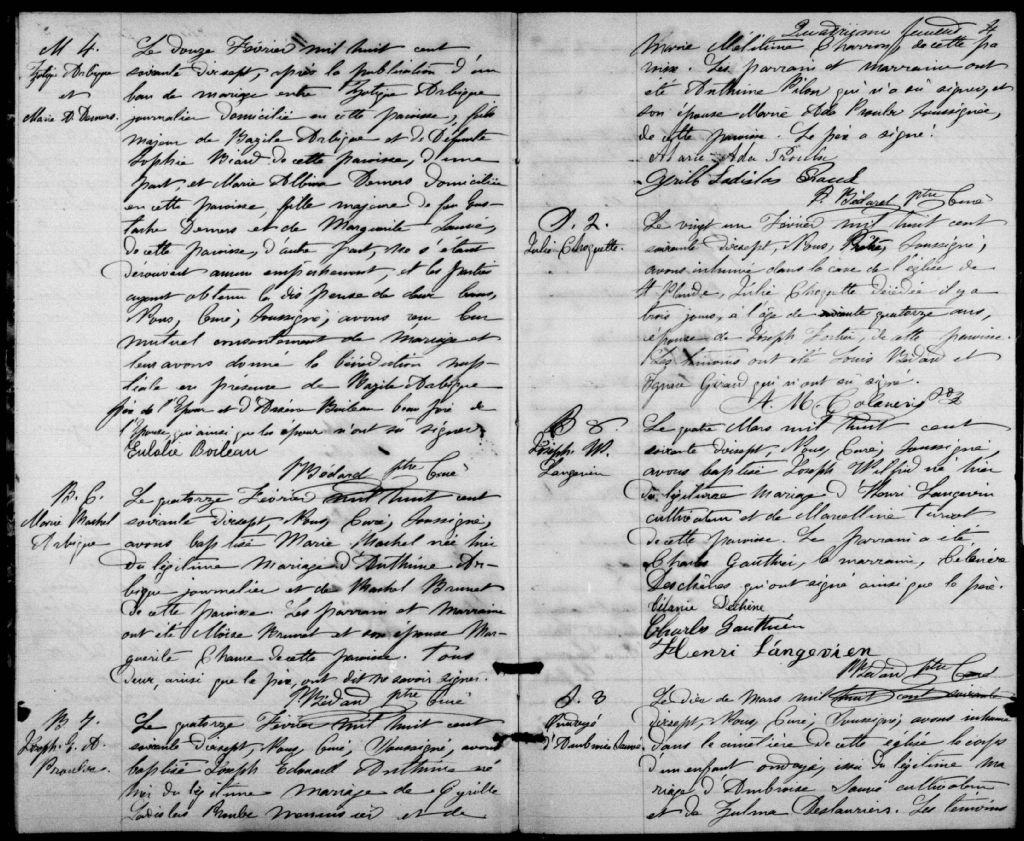 M 4.
Zotique Arbique
et
Marie A. Demers.
Le douze Février mil huit cent
soixante dixsept, après la publication d'un
ban de mariage entre Zotique Arbique
journalier domicilié en cette paroisse, fils
majeur de Bazile Arbique et de Défunte
Sophie Béard de cette paroisse, d'une
part, et Marie Albina Demers domiciliée
en cette paroisse, fille majeure de feu Eus-
tache Demers et de Marguerite Sauvé,
de cette paroisse, d'autre part, ne s'étant
découvert aucun empêchement, et les parties
ayant obtenu la dispense de deux bans,
Nous, Curé, soussigné, avons reçu leur
mutuel consentement de mariage et
leur avons donné la bénédiction nup-
tiale en présence de Bazile Arbique
père de l'Epoux et d'Arsène Boileau beau frère de
l'épouse qui ainsi que les époux n'ont su signer
Eulalie Boileau
P. Bédard ptre Curé
B. 6.
Marie Machel
Arbique
Le quatorze Février mil huit cent
soixante dixsept, Nous, Curé, soussigné,
avons baptisé Marie Machel née hier
du légitime mariage d'Anthime Ar-
bique journalier et de Machel Brunet
de cette paroisse. Les parrain et marraine
ont été Moïse Brunet et son épouse Mar-
guerite de cette paroisse. Tous
deux, ainsi que le père, ont dit ne savoir signer.
P. Bédard ptre Curé
B 7.
Joseph E. A.
Proulx.
Le quatorze Février mil huit cent
soixante dixsept, Nous, Curé, soussigné, avons
baptisé Joseph Edouard Anthime né
hier du légitime mariage de Cyrille
Ladislas Proulx menuisier et de
Quatrième feuillet 4
Marie Méletime Charron, de cette pa-
roisse. Les parrain et marraine ont
été Anthime Pilon qui n'a su signer, et
son épouse Marie Ada Proulx soussignée,
de cette paroisse. Le père a signé.
Marie-Ada Proulx
Cyrille Ladislas Proulx
P. Bédard ptre Curé
S. 2.
Julie Choquette.
Le vingt un Février mil huit cent
soixante dixsept, Nous, Prêtre, soussigné,
avons inhumé dans la cave de l'église de
Julie Choquette décédée il y a
trois jours, à l'âge de soixante quatorze ans,
épouse de Joseph Fortier, de cette paroisse.
Les témoins ont été Louis Bédard et
Ignace Girard qui n'ont su signé.
A. M.
B 8
Joseph W.
Langevin
Le quatre Mars mil huit cent
soixante dixsept, Nous, Curé, soussigné,
avons baptisé Joseph Wilfrid né hier
du légitime mariage d'Henri Langevin
cultivateur et de Marcelline Turcot
de cette paroisse. Le parrain a été
Charles Gauthier, la marraine,
Deschênes qui ont signé ainsi que le père.
Charles Gauthier
Henri Langevien
P. Bédard ptre Curé
S. 3
Ondoyé
d'Ambroise Sauvé
Le dix de Mars mil huit cent soixante
dixsept, Nous, Curé, soussigné, avons inhumé
dans le cimetière de cette église le corps
d'un enfant ondoyé, issu du légitime ma-
riage d'Ambroise Sauvé cultivateur
et de Zulma Deslauriers. Les témoins